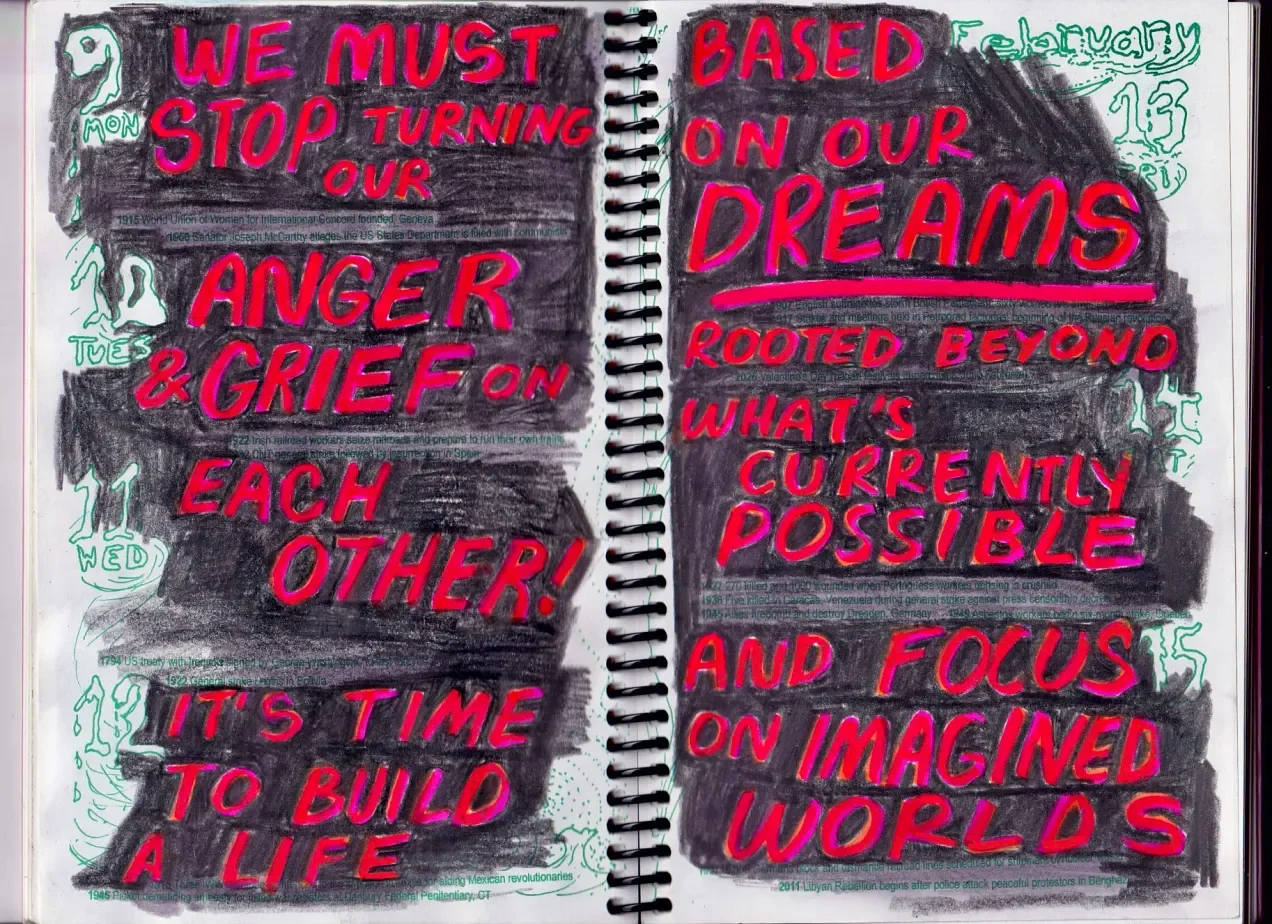 9
MON
WE MUST
STOP TURNING
OUR
1915 World Union of Women for International Concord founded, Geneva
1950 Senator Joseph McCarthy alleges the US States Department is filled with communists
10
TUES
ANGER
& GRIEF ON
1922 Irish railroad workers seize railroads and prepare to run their own trains
CNT general strike followed by insurrection in Spain
11
WED
EACH
OTHER!
1794 US treaty with
1922 General strike begins in Bolivia
12
IT'S TIME
TO BUILD
A LIFE
for aiding Mexican revolutionaries
1946 Picket benefiting amnesty for jailed war resisters at Danbury Federal Penitentiary, CT
February
13
FRI
BASED
ON OUR
DREAMS
meetings held in Petrograd factories, beginning of the Russian
ROOTED BEYOND
14
WHAT'S
CURRENTLY
POSSIBLE
1927 270 killed and 1000 wounded when Portuguese workers uprising is crushed
1936 Five killed in Caracas, Venezuela during general strike against press censorship decree
1945 Allies firebomb and destroy Dresden, Germany
15
AND FOCUS
ON IMAGINED
WORLDS
2011 Libyan Rebellion begins after police attack peaceful protestors in Benghazi